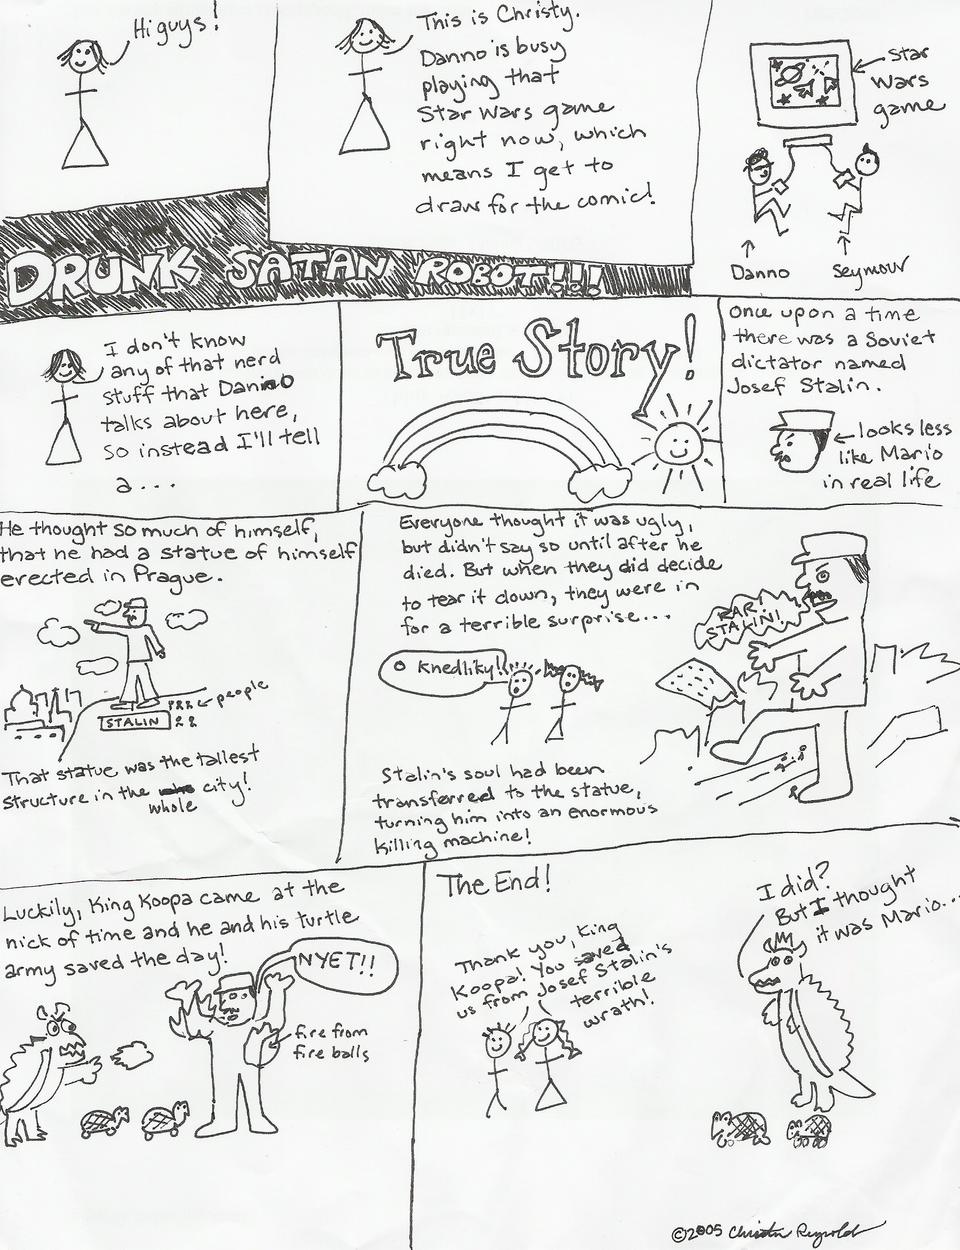 Hi guys!
This is Christy.
Danno is busy
playing that
Star Wars game
right now, which
means I get to
draw for the comic!
Star
Wars
game
Danno
Seymour
DRUNK SATAN ROBOT!!!
I don't know
any of that nerd
stuff that Danno
talks about here,
so instead I'll tell
a...
True Story!
Once upon a time
there was a Soviet
dictator named
Josef Stalin.
looks less
like Mario
in real life
He thought so much of himself,
that he had a statue of himself
erected in Prague.
people
STALIN
That statue was the tallest
structure in the whole city!
Everyone thought it was ugly,
but didn't say so until after he
died. But when they did decide
to tear it down, they were in
for a terrible surprise...
RAR!
STALIN!
O knedliky!!
Stalin's soul had been
transferred to the statue,
turning him into an enormous
killing machine!
Luckily, King Koopa came at the
nick of time and he and his turtle
army saved the day!
NYET!!
fire from
fire balls
The End!
Thank you, King
Koopa! You saved
us from Josef Stalin's
terrible
wrath!
I did?
But I thought
it was Mario...
©2005 Christin Reynolds